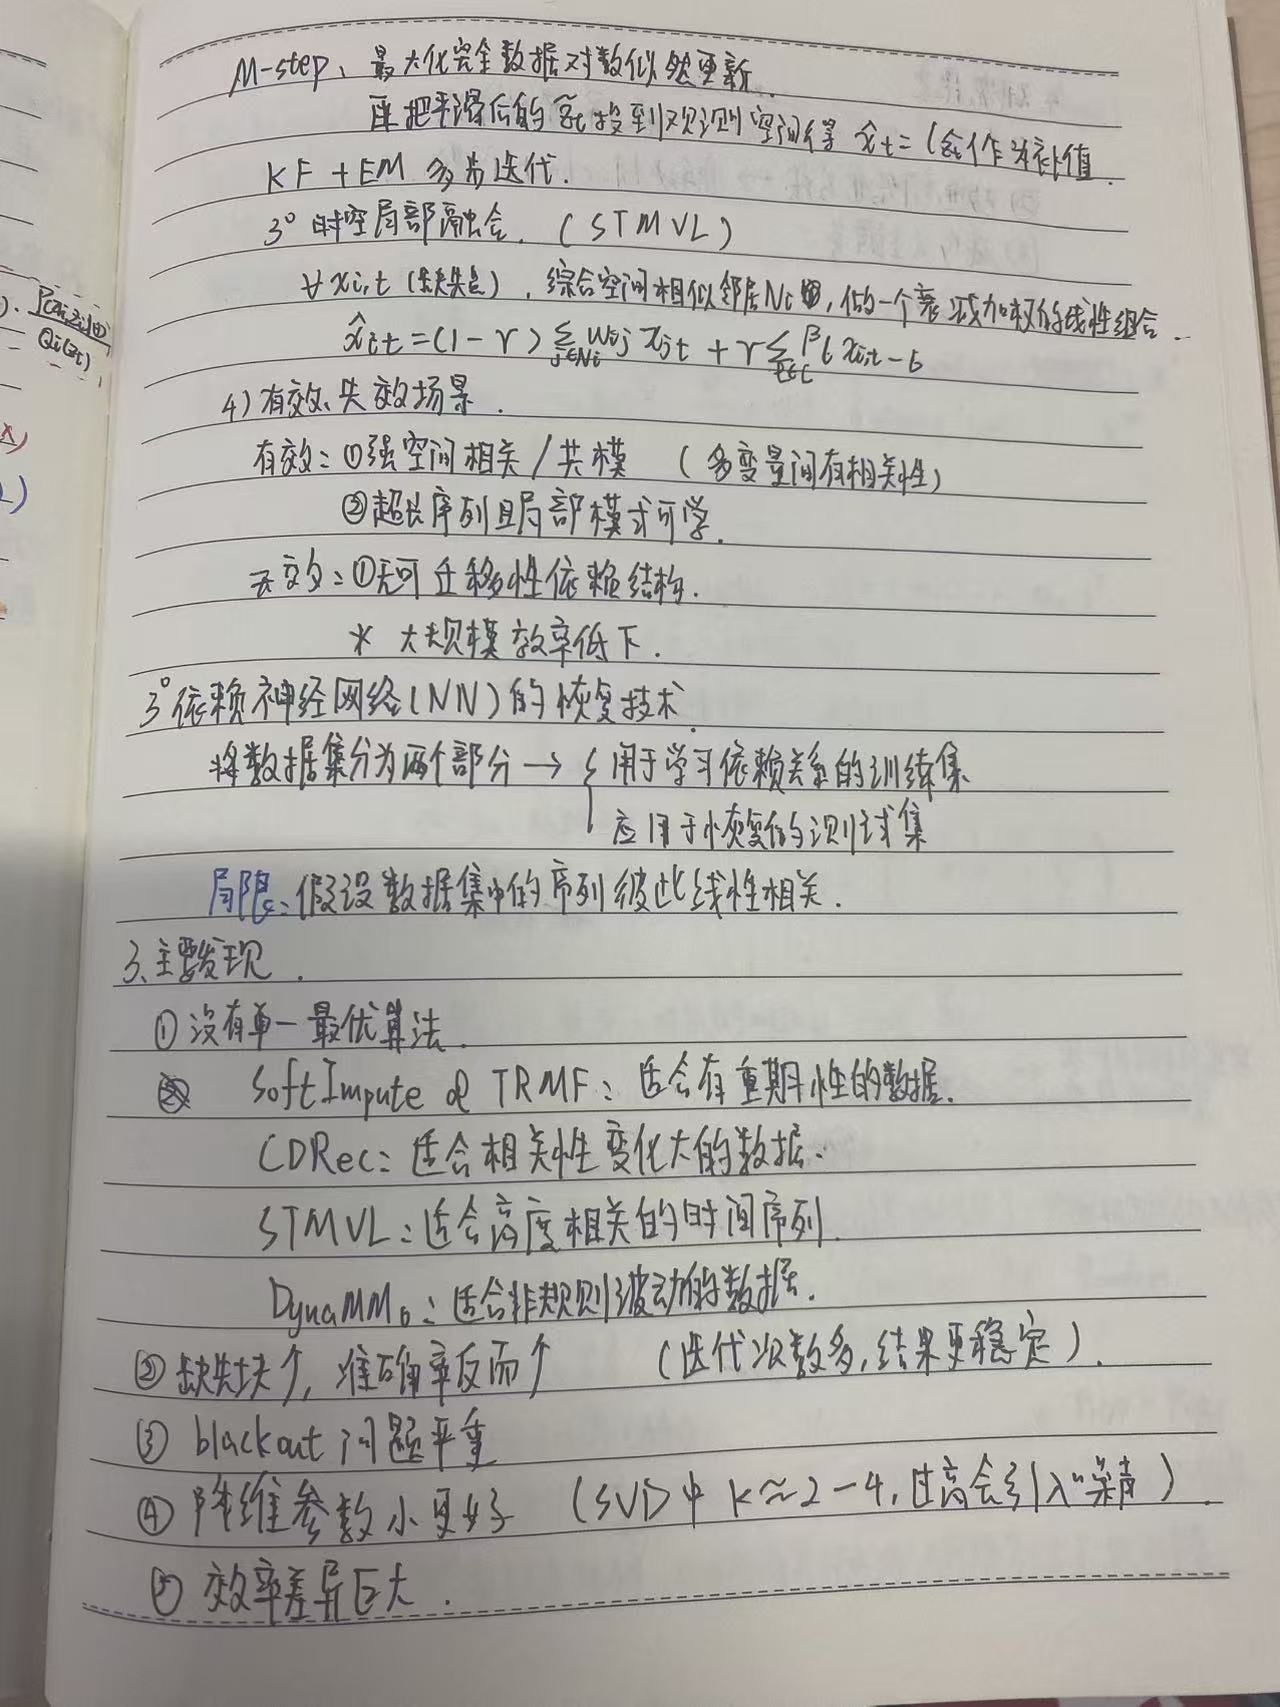 M-step、最大化完全数据对数似然更新.
把平滑后的 投到观测空间得 x̂t= 作为补值.
KF+EM 多步迭代.
3° 时空局部融合. (STMVL)
∀xi,t (缺失点), 综合空间相似邻居Ni, 做一个衰减加权的线性组合.
x̂it=(1-r)∑j∈Ni wij xjt + r∑ βl xi,t-
4) 有效、失效场景.
有效: ①强空间相关/共模 (多变量间有相关性)
②超长序列且局部模式可学.
无效: ①无可迁移性依赖结构.
* 大规模效率低下.
3° 依赖神经网络(NN)的恢复技术.
将数据集分为两个部分→{用于学习依赖关系的训练集
应用于恢复的测试集
局限: 假设数据集中的序列彼此线性相关.
3、主要发现.
①没有单一最优算法.
SoftImpute & TRMF: 适合有重期性的数据.
CDRec: 适合相关性变化大的数据.
STMVL: 适合高度相关的时间序列.
DynaMMo: 适合非规则波动的数据.
②缺失块↑, 准确率反而↑ (迭代次数多, 结果更稳定).
③ blackout 问题严重
④ 降维参数小更好 (SVD中 k≈2-4, 过高会引入"噪声").
⑤ 效率差异巨大.
P(xi,zi|θ)
Qi(zi)